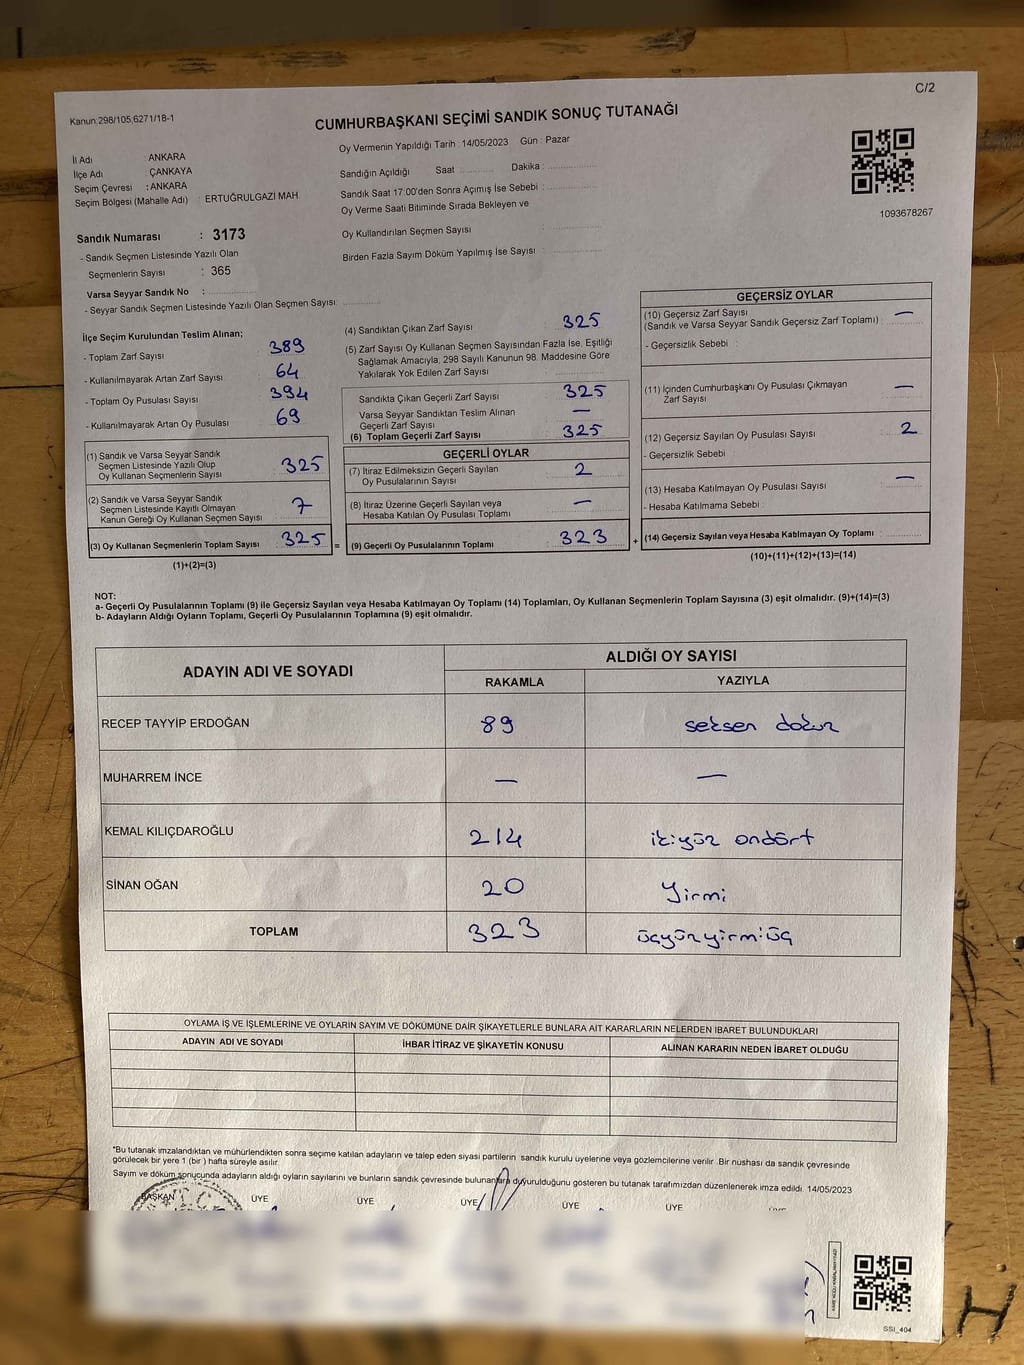 C/2
Kanun:298/105;6271/18-1
CUMHURBAŞKANI SEÇİMİ SANDIK SONUÇ TUTANAĞI
İl Adı : ANKARA
İlçe Adı : ÇANKAYA
Seçim Çevresi : ANKARA
Seçim Bölgesi (Mahalle Adı) : ERTUĞRULGAZİ MAH
Oy Vermenin Yapıldığı Tarih : 14/05/2023 Gün : Pazar
Sandığın Açıldığı Saat Dakika :
Sandık Saat 17:00'den Sonra Açımış İse Sebebi :
Oy Verme Saati Bitiminde Sırada Bekleyen ve
Oy Kullandırılan Seçmen Sayısı :
Birden Fazla Sayım Döküm Yapılmış İse Sayısı :
1093678267
Sandık Numarası : 3173
- Sandık Seçmen Listesinde Yazılı Olan
Seçmenlerin Sayısı : 365
Varsa Seyyar Sandık No :
- Seyyar Sandık Seçmen Listesinde Yazılı Olan Seçmen Sayısı:
İlçe Seçim Kurulundan Teslim Alınan;
- Toplam Zarf Sayısı 389
- Kullanılmayarak Artan Zarf Sayısı 64
- Toplam Oy Pusulası Sayısı 394
- Kullanılmayarak Artan Oy Pusulası 69
(1) Sandık ve Varsa Seyyar Sandık
Seçmen Listesinde Yazılı Olup
Oy Kullanan Seçmenlerin Sayısı 325
(2) Sandık ve Varsa Seyyar Sandık
Seçmen Listesinde Kayıtlı Olmayan
Kanun Gereği Oy Kullanan Seçmen Sayısı 7
(3) Oy Kullanan Seçmenlerin Toplam Sayısı 325 =
(1)+(2)=(3)
(4) Sandıktan Çıkan Zarf Sayısı 325
(5) Zarf Sayısı Oy Kullanan Seçmen Sayısından Fazla İse, Eşitliği
Sağlamak Amacıyla, 298 Sayılı Kanunun 98. Maddesine Göre
Yakılarak Yok Edilen Zarf Sayısı :
Sandıkta Çıkan Geçerli Zarf Sayısı 325
Varsa Seyyar Sandıktan Teslim Alınan
Geçerli Zarf Sayısı —
(6) Toplam Geçerli Zarf Sayısı 325
GEÇERLİ OYLAR
(7) İtiraz Edilmeksizin Geçerli Sayılan
Oy Pusulalarının Sayısı 2
(8) İtiraz Üzerine Geçerli Sayılan veya
Hesaba Katılan Oy Pusulası Toplamı —
(9) Geçerli Oy Pusulalarının Toplamı 323 +
GEÇERSİZ OYLAR
(10) Geçersiz Zarf Sayısı —
(Sandık ve Varsa Seyyar Sandık Geçersiz Zarf Toplamı) :
- Geçersizlik Sebebi :
(11) İçinden Cumhurbaşkanı Oy Pusulası Çıkmayan
Zarf Sayısı —
(12) Geçersiz Sayılan Oy Pusulası Sayısı : 2
- Geçersizlik Sebebi
(13) Hesaba Katılmayan Oy Pusulası Sayısı : —
- Hesaba Katılmama Sebebi :
(14) Geçersiz Sayılan veya Hesaba Katılmayan Oy Toplamı :
(10)+(11)+(12)+(13)=(14)
NOT:
a- Geçerli Oy Pusulalarının Toplamı (9) ile Geçersiz Sayılan veya Hesaba Katılmayan Oy Toplamı (14) Toplamları, Oy Kullanan Seçmenlerin Toplam Sayısına (3) eşit olmalıdır. (9)+(14)=(3)
b- Adayların Aldığı Oyların Toplamı, Geçerli Oy Pusulalarının Toplamına (9) eşit olmalıdır.
ADAYIN ADI VE SOYADI ALDIĞI OY SAYISI
RAKAMLA YAZIYLA
RECEP TAYYİP ERDOĞAN 89 seksen dokuz
MUHARREM İNCE — —
KEMAL KILIÇDAROĞLU 214 ikiyüz ondört
SİNAN OĞAN 20 Yirmi
TOPLAM 323 üçyüzyirmiüç
OYLAMA İŞ VE İŞLEMLERİNE VE OYLARIN SAYIM VE DÖKÜMÜNE DAİR ŞİKAYETLERLE BUNLARA AİT KARARLARIN NELERDEN İBARET BULUNDUKLARI
ADAYIN ADI VE SOYADI İHBAR İTİRAZ VE ŞİKAYETİN KONUSU ALINAN KARARIN NEDEN İBARET OLDUĞU
*Bu tutanak imzalandıktan ve mühürlendikten sonra seçime katılan adayların ve talep eden siyasi partilerin sandık kurulu üyelerine veya gözlemcilerine verilir. Bir nüshası da sandık çevresinde
görülecek bir yere 1 (bir) hafta süreyle asılır.
Sayım ve döküm sonucunda adayların aldığı oyların sayılarını ve bunların sandık çevresinde bulunanlara duyurulduğunu gösteren bu tutanak tarafımızdan düzenlenerek imza edildi. 14/05/2023
BAŞKAN ÜYE ÜYE ÜYE ÜYE ÜYE
SSI_404